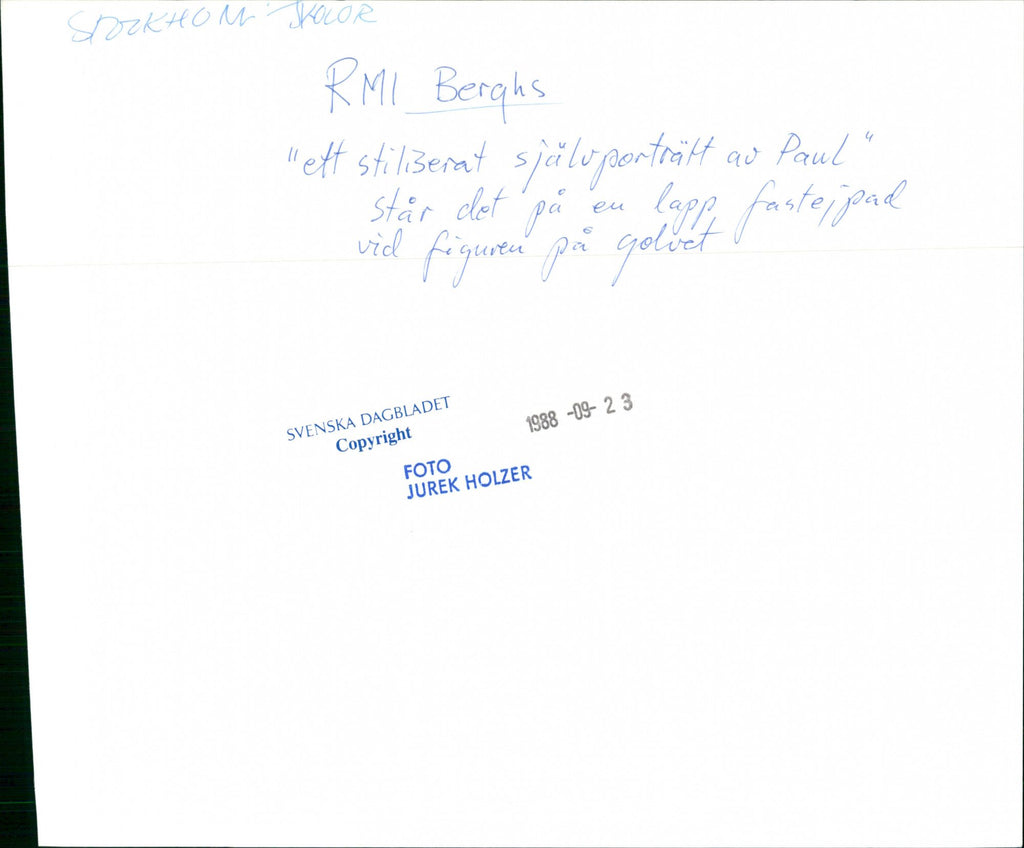 STOCKHOLM SKOLOR
RMI Berghs
"ett stiliserat självporträtt av Paul"
står det på en lapp fastejpad
vid figuren på golvet
SVENSKA DAGBLADET
Copyright
1988 -09- 2 3
FOTO
JUREK HOLZER